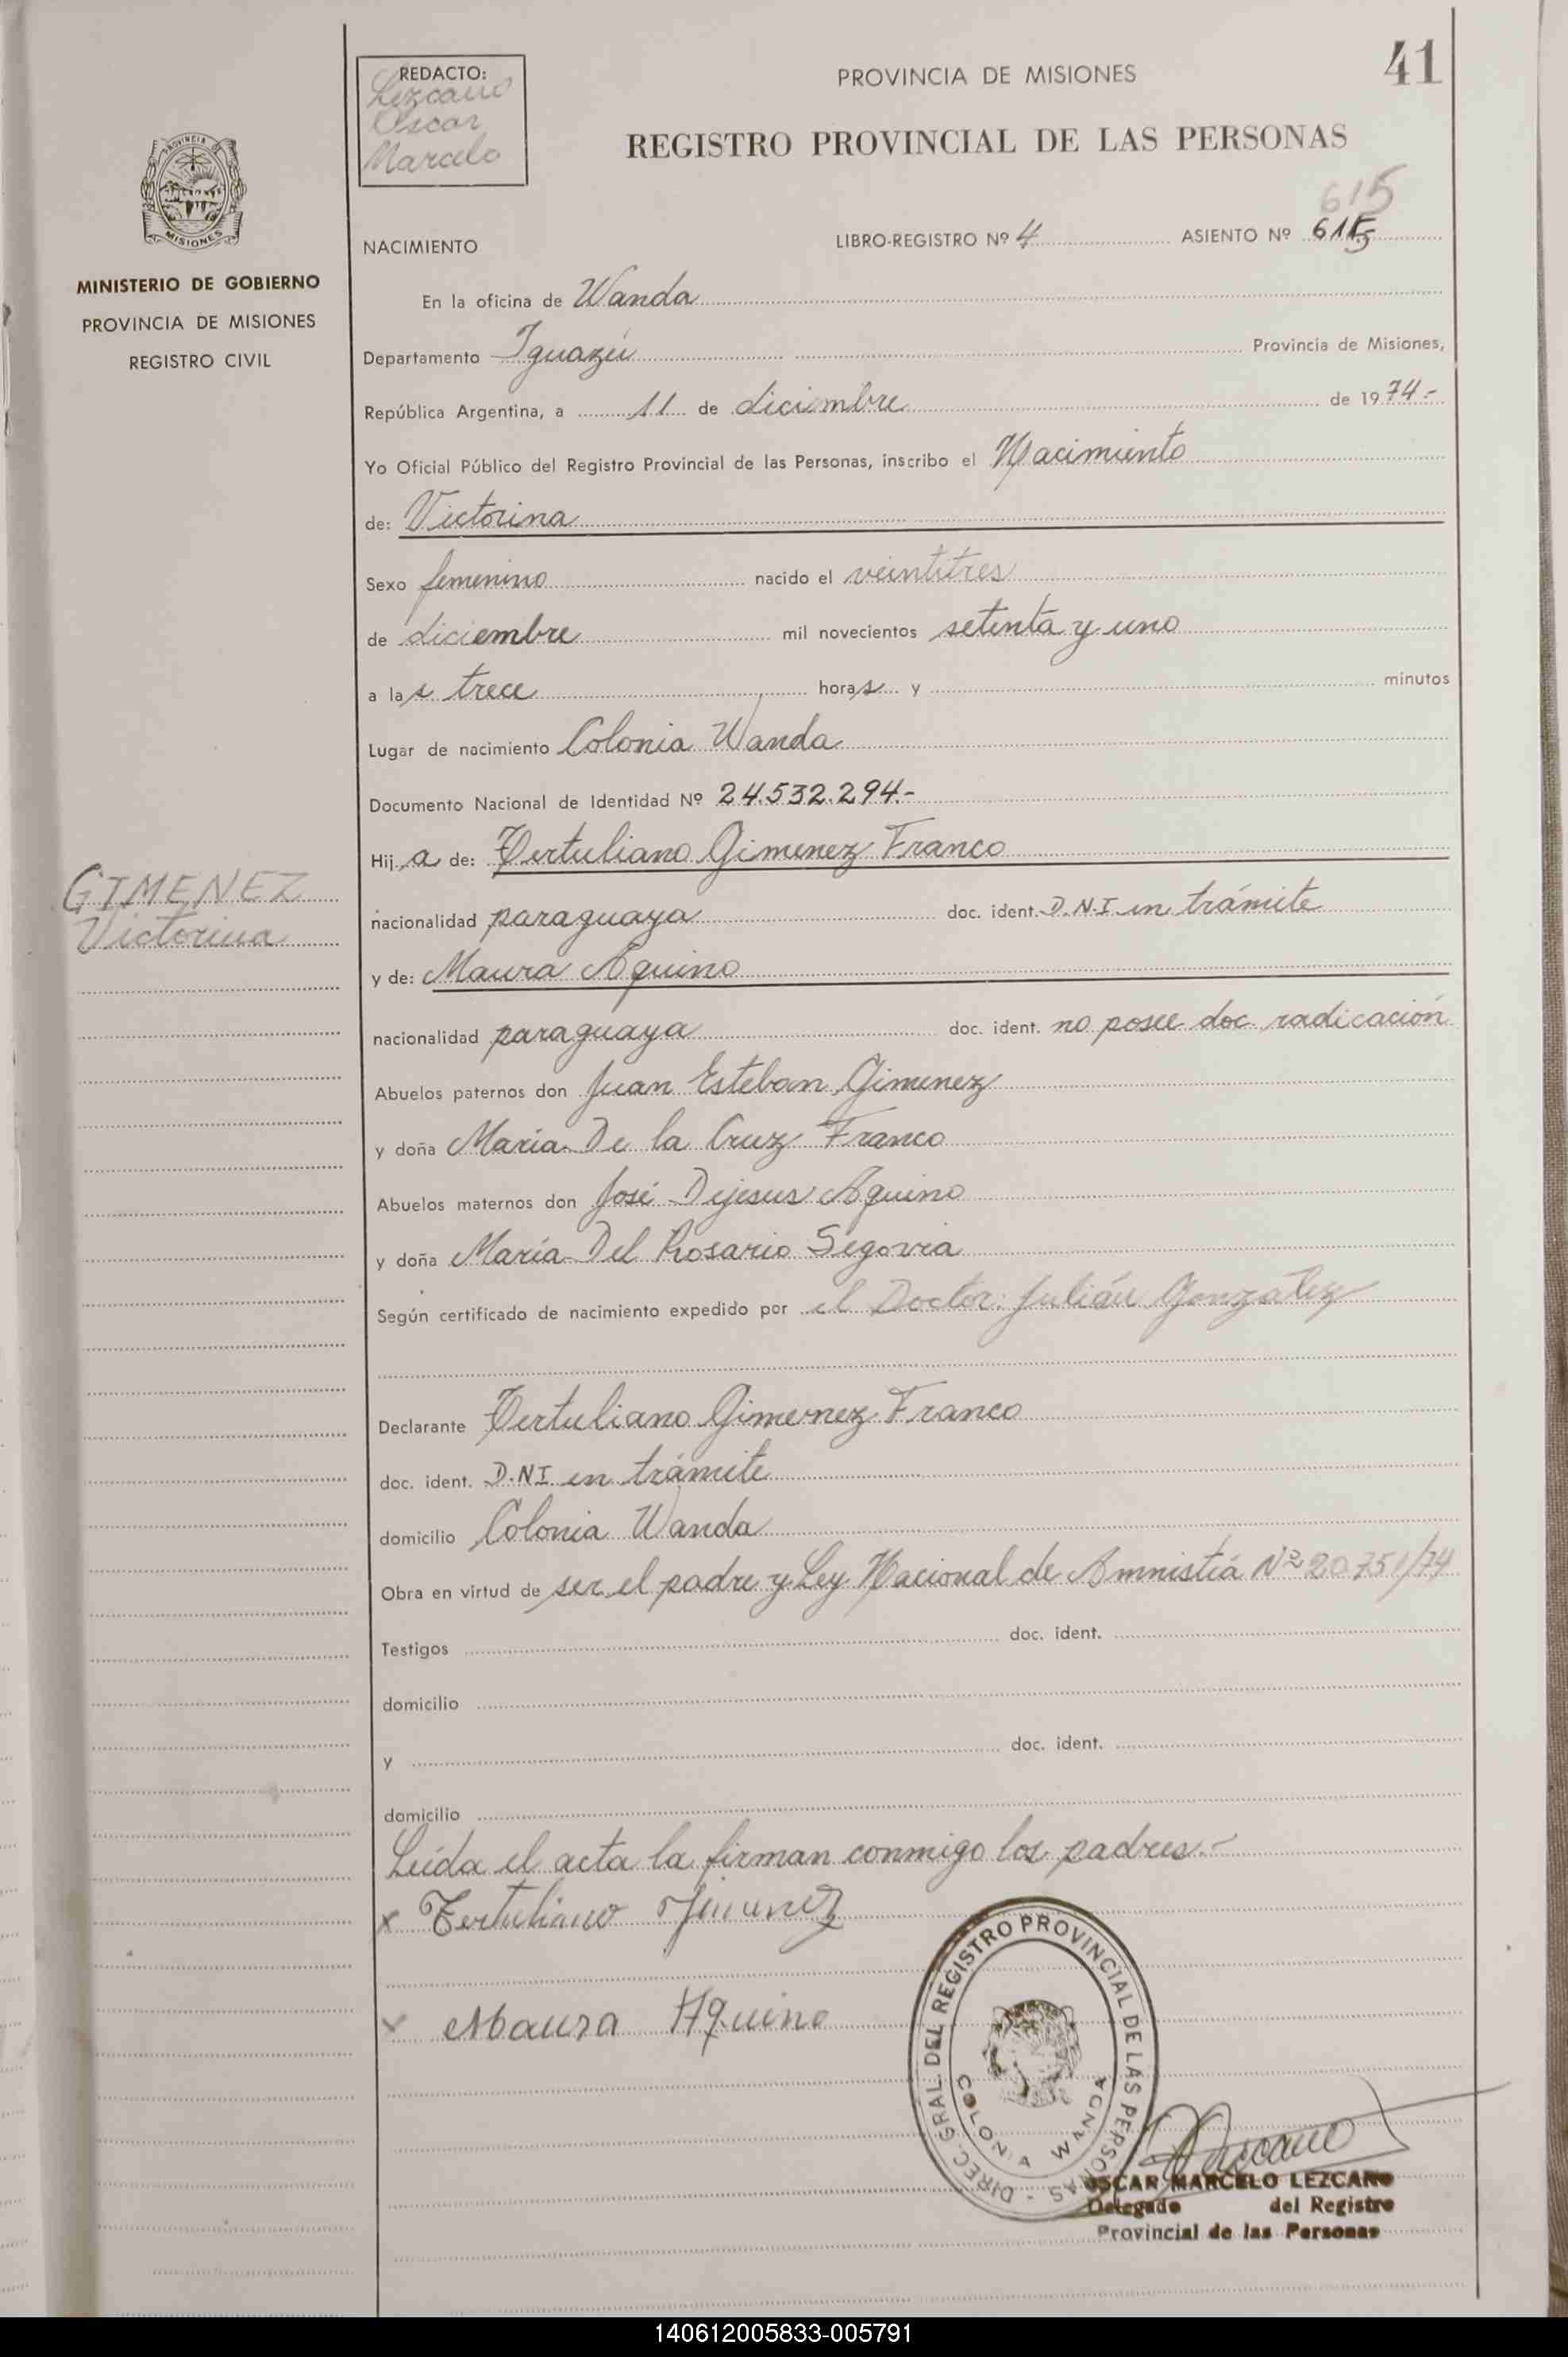 41
REDACTO:
Lezcano
Oscar
Marcelo
PROVINCIA DE MISIONES
REGISTRO PROVINCIAL DE LAS PERSONAS
PROVINCIA DE
MISIONES
MINISTERIO DE GOBIERNO
PROVINCIA DE MISIONES
REGISTRO CIVIL
615
NACIMIENTO LIBRO-REGISTRO Nº 4 ASIENTO Nº 615
En la oficina de Wanda
Departamento Iguazú Provincia de Misiones,
República Argentina, a 11 de diciembre de 1974.-
Yo Oficial Público del Registro Provincial de las Personas, inscribo el Nacimiento
de: Victorina
Sexo femenino nacido el veintitres
de diciembre mil novecientos setenta y uno
a las trece horas y minutos
Lugar de nacimiento Colonia Wanda
Documento Nacional de Identidad Nº 24.532.294.-
Hij a de: Tertuliano Gimenez Franco
GIMENEZ
Victorina
nacionalidad paraguaya doc. ident. D.N.I en trámite
y de: Maura Aquino
nacionalidad paraguaya doc. ident. no posee doc. radicación
Abuelos paternos don Juan Esteban Gimenez
y doña María De la Cruz Franco
Abuelos maternos don José Dejesus Aquino
y doña María Del Rosario Segovia
Según certificado de nacimiento expedido por el Doctor: Julián Gonzalez
Declarante Tertuliano Gimenez Franco
doc. ident. D.NI en trámite
domicilio Colonia Wanda
Obra en virtud de ser el padre y Ley Nacional de Amnistía Nº 20.751/74
Testigos doc. ident.
domicilio
y doc. ident.
domicilio
Leída el acta la firman conmigo los padres.-
x Tertuliano Jimenez
x Maura Aquino
DIREC. GRAL. DEL REGISTRO PROVINCIAL DE LAS PERSONAS -
COLONIA WANDA
Lezcano
OSCAR MARCELO LEZCANO
Delegado del Registro
Provincial de las Personas
140612005833-005791